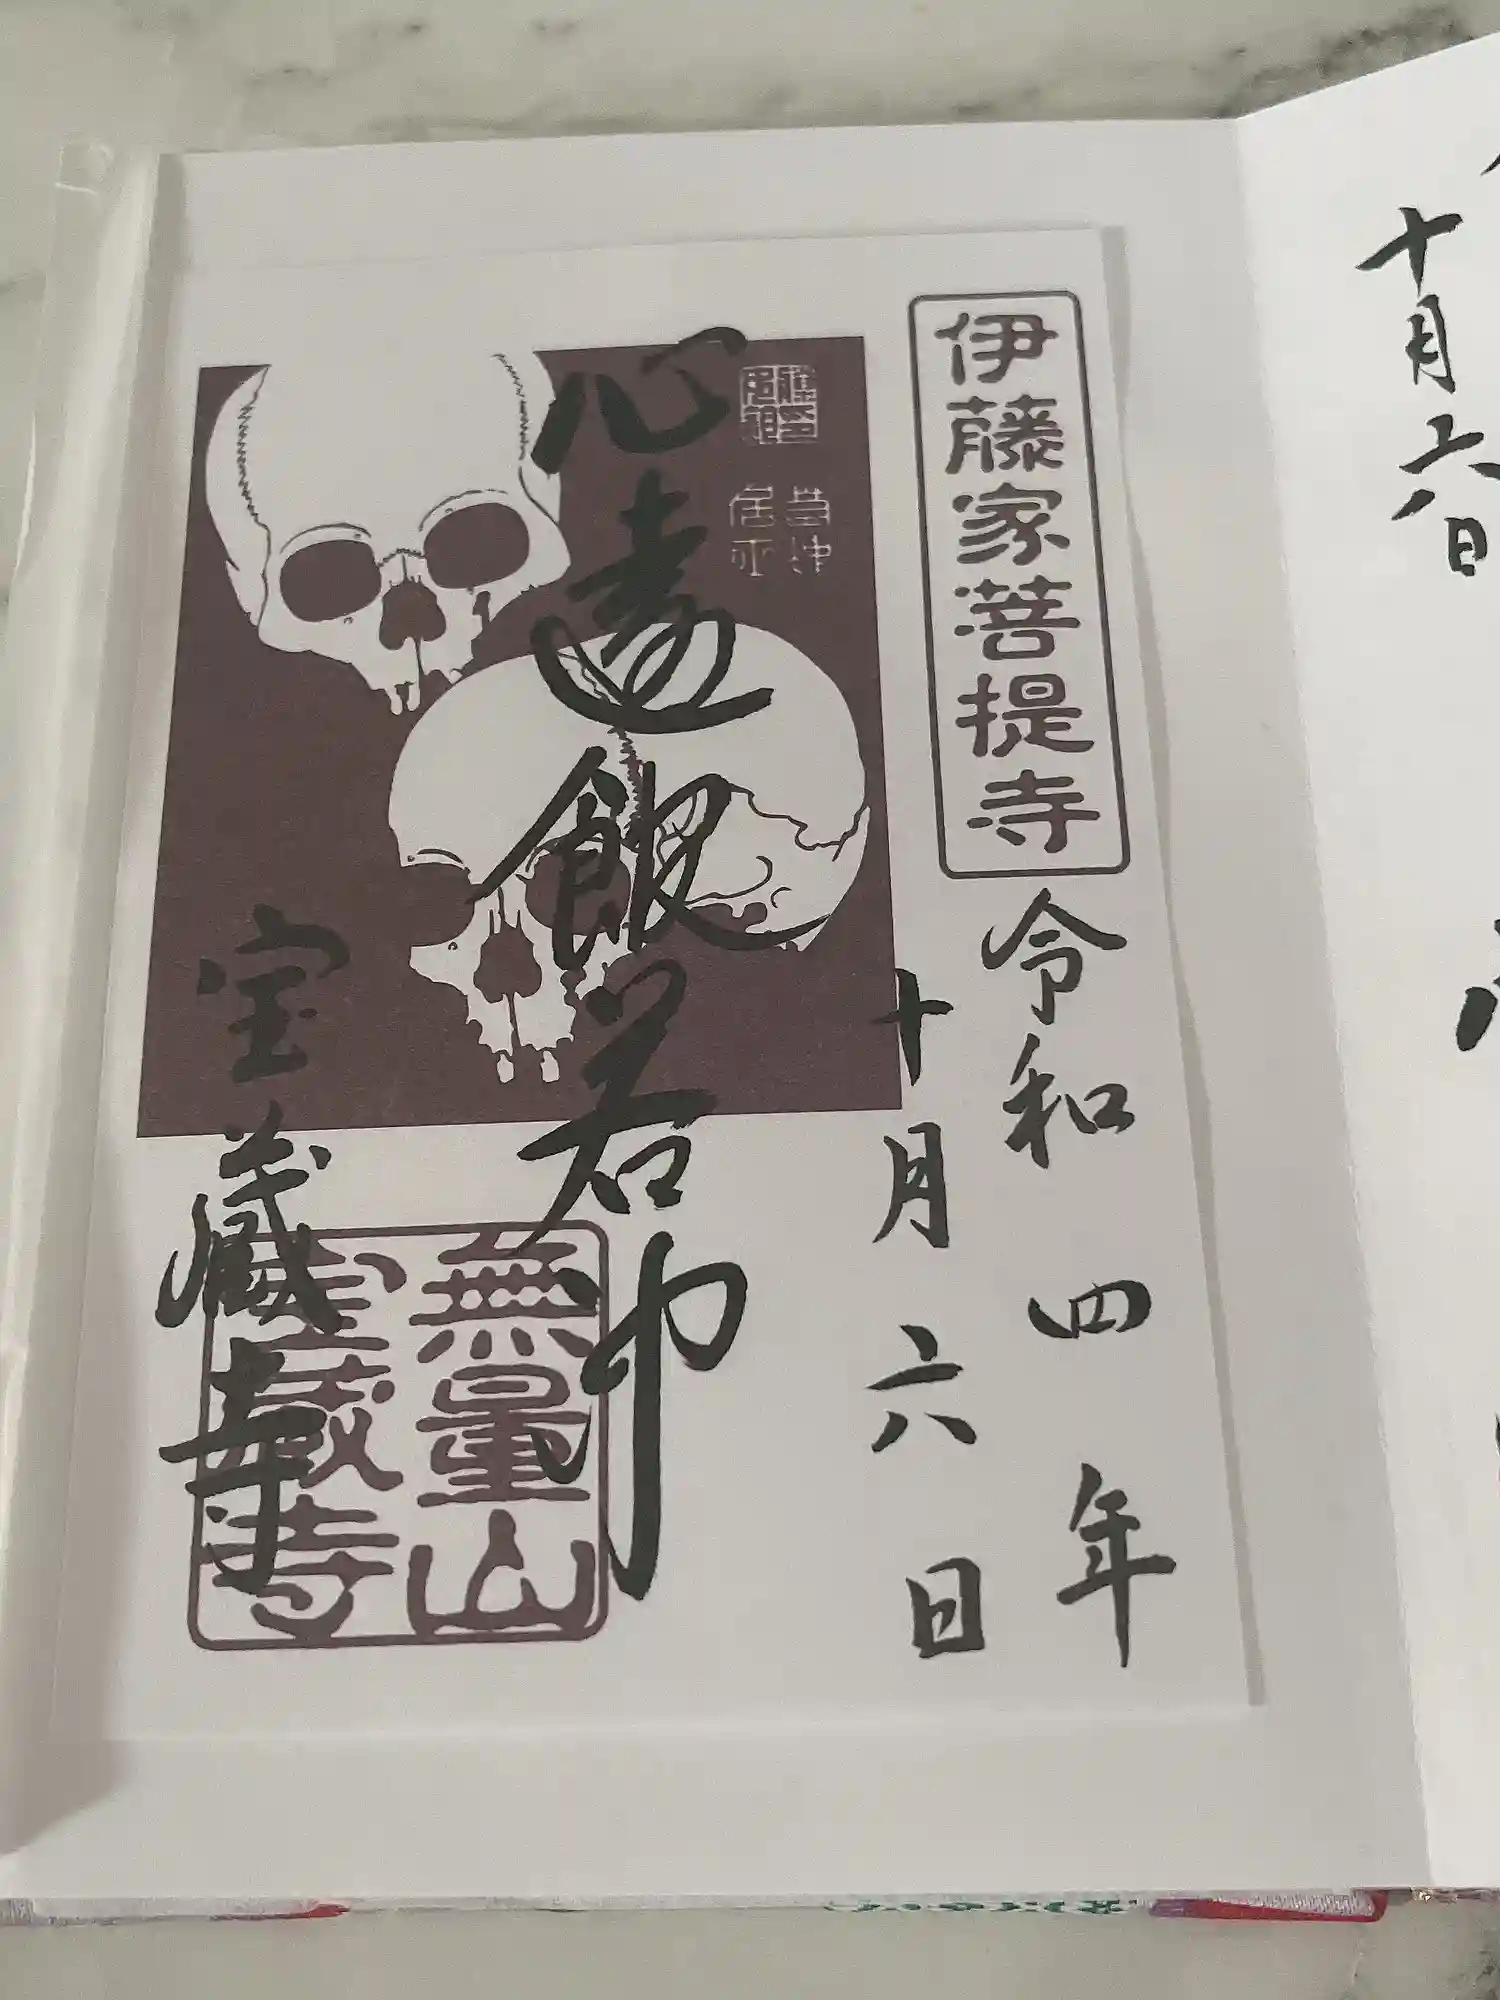 十月六日
伊藤家菩提寺
令和四年
十月六日
若冲
居士
心遠館若冲
無量山
宝蔵寺
宝蔵寺